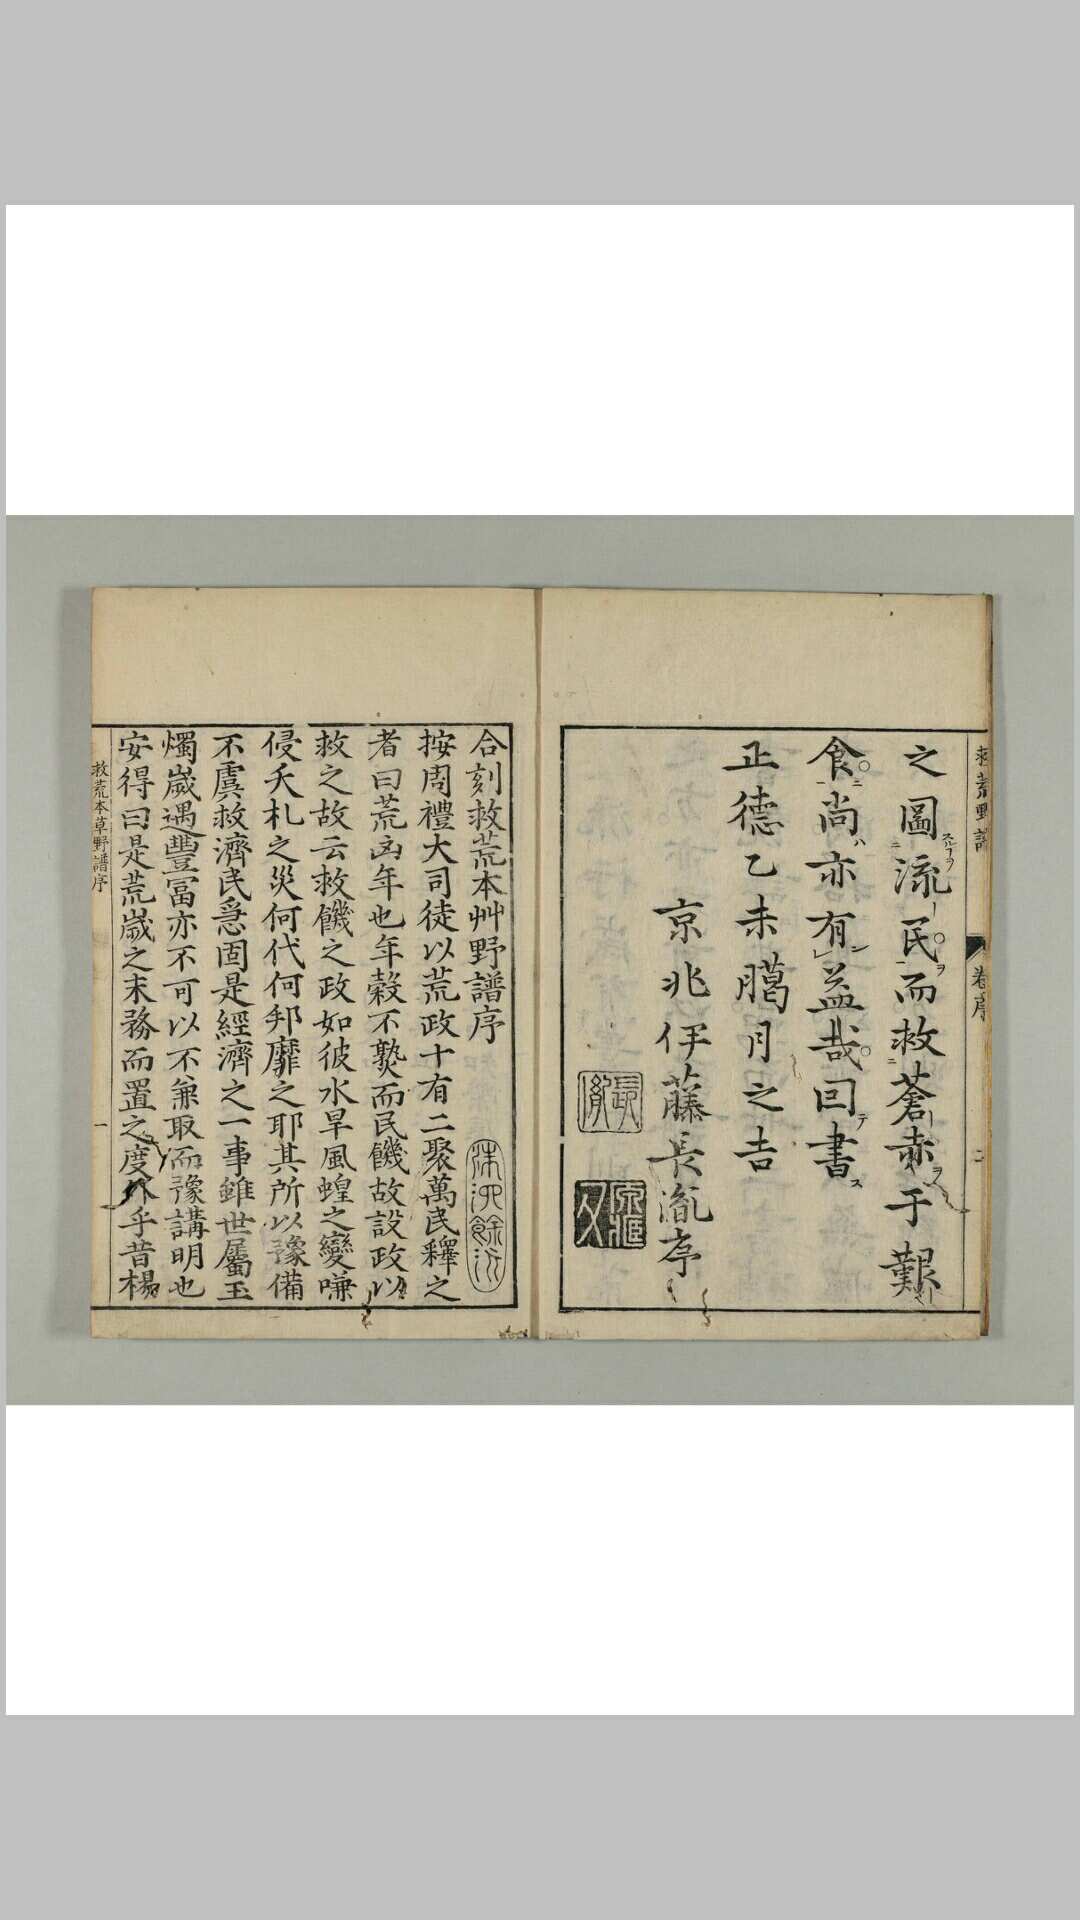 救荒野譜
卷序
二
之圖流民而救蒼赤于艱
食尚亦有益哉回書
正德乙未臈月之吉
京兆伊藤長胤序
長胤
合刻救荒本艸野譜序
按周禮大司徒以荒政十有二聚萬民釋之
者曰荒凶年也年穀不熟而民饑故設政以
救之故云救饑之政如彼水旱風蝗之變嗛
侵夭札之災何代何邦靡之耶其所以豫備
不虞救濟民急固是經濟之一事雖世屬玉
燭歲遇豐冨亦不可以不兼取而豫講明也
安得曰是荒歲之末務而置之度外乎昔楊
救荒本草野譜序
一